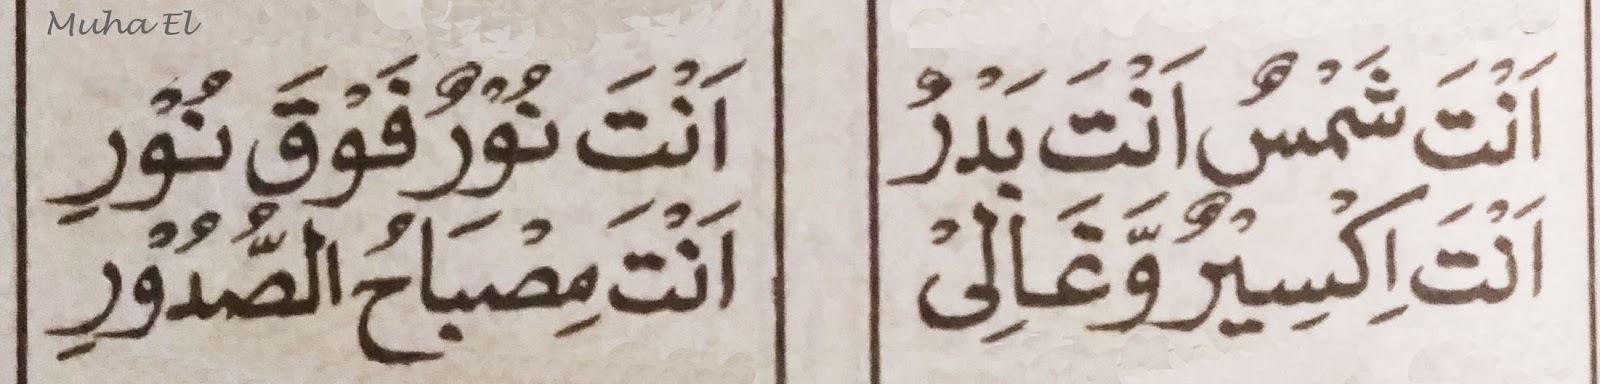 Muha El
اَنْتَ شَمْسٌ اَنْتَ بَدْرُ
اَنْتَ نُوْرٌ فَوْقَ نُوْرٍ
اَنْتَ اِكْسِيْرٌ وَّغَالِىْ
اَنْتَ مِصْبَاحُ الصُّدُوْرِ